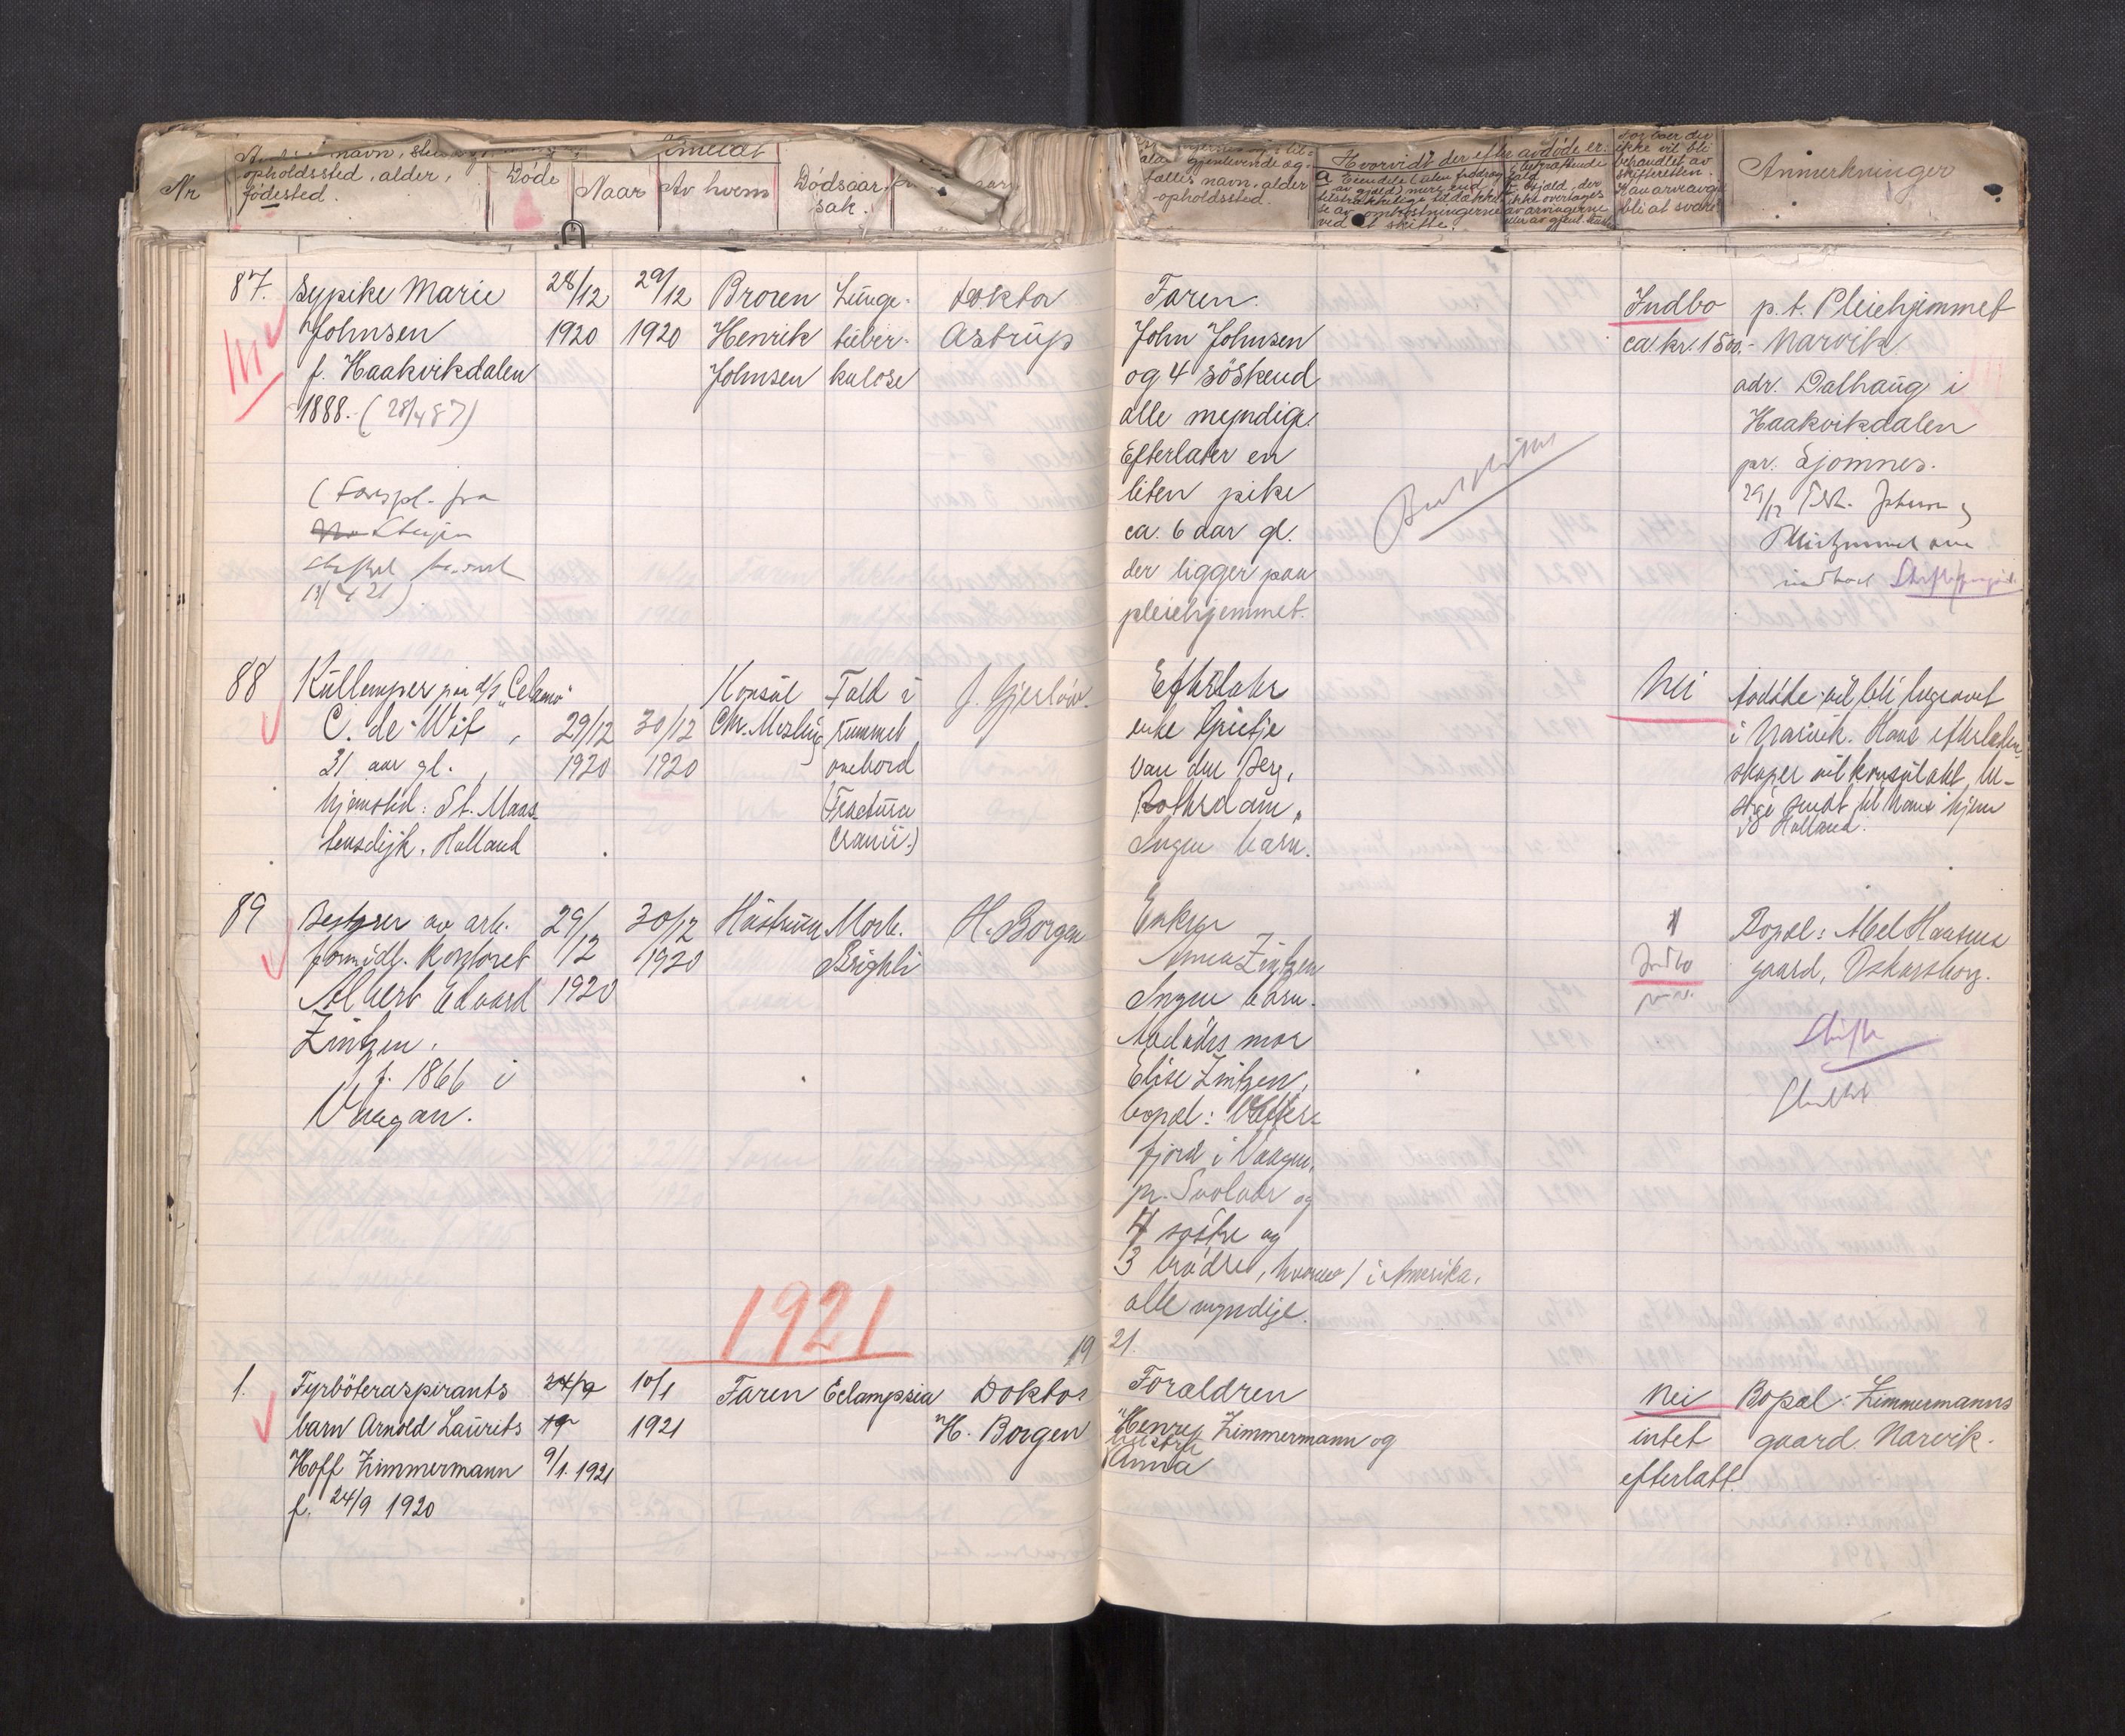 Nr
navn,
opholdssted, alder,
födested.
Döde
Anmeldt
Naar
Av hvem
Dödsaar-
sak.
gjenlevende æg-
tefælles navn, alder
opholdssted.
Hvorvidt der efter avdöde er:
ved et skifte.
ikke vil bli
behandlet av
skifteretten.
bli at svare
Anmerkninger
87.
Sypike Marie
Johnsen
f. Haakvikdalen
1888. (28/4 87)
28/12
1920
29/12
1920
Broren
Henrik
Johnsen
Lunge-
tuber-
kulose
Doktor
Astrup
Faren
John Johnsen
og 4 söskend
alle myndige.
Efterlater en
liten pike
ca. 6 aar gl.
der ligger paa
pleiehjemmet.
Indbo
ca. kr. 1500.-
p. t. Pleiehjemmet
Narvik.
adr. Dalhaug i
Haakvikdalen
pr. Sjomnes.
29/12
88
Kullemper paa d/s
C. de Wit
31 aar gl.
hjemsted: St. Maar-
tensdijk. Holland
29/12
1920
30/12
1920
Konsul
Chr. Mosling
Fald i
rummet
ombord
(Fractura
cranii.)
J. Gjerlöv.
Efterlater
enke
van den Berg,
Rotterdam.
Ingen barn.
Nei
Avdöde vil bli begravet
i Narvik. Hans efterladen-
skaper vil konsulatet be-
sörge sendt til hans hjem
i Holland.
89
Bestyrer av arb.
formidl. kontoret
Albert Edvard
Zintzen.
f. 1866 i
Vaagan.
29/
12
1920
30/12
1920
Hustruen
Morb.
Brighti
H. Borgen
Enken
Anna Zintzen
Ingen barn.
Avdödes mor
Elise Zintzen,
bopæl:
fjord i Vaagan,
pr. Svolvær og
4 söstre og
3 brödre, hvorav 1 i Amerika.
alle myndige.
Indbo
Bopæl: Abel Hansens
gaard, Oskarsborg.
Skifte
1921
19
21.
1.
Fyrböteraspirants
barn Arnold Laurits
Hoff Zimmermann
f. 24/9 1920
24/9
19
9/1. 1921
10/1
1921
Faren
Eclampsia
Doktor
H. Borgen
Foraldren
Henry Zimmermann og
hustru
Anna
Nei
intet
efterlatt.
Bopæl: Zimmermanns
gaard. Narvik.